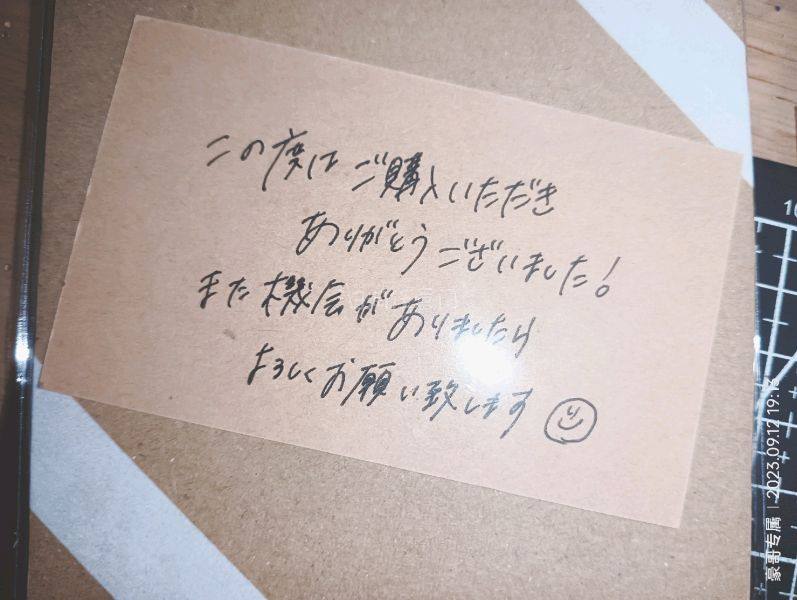 この度は ご購入いただき
ありがとうございました!
また機会がありましたら
よろしくお願い致します
豪哥专属 | 2023.09.12 19:13